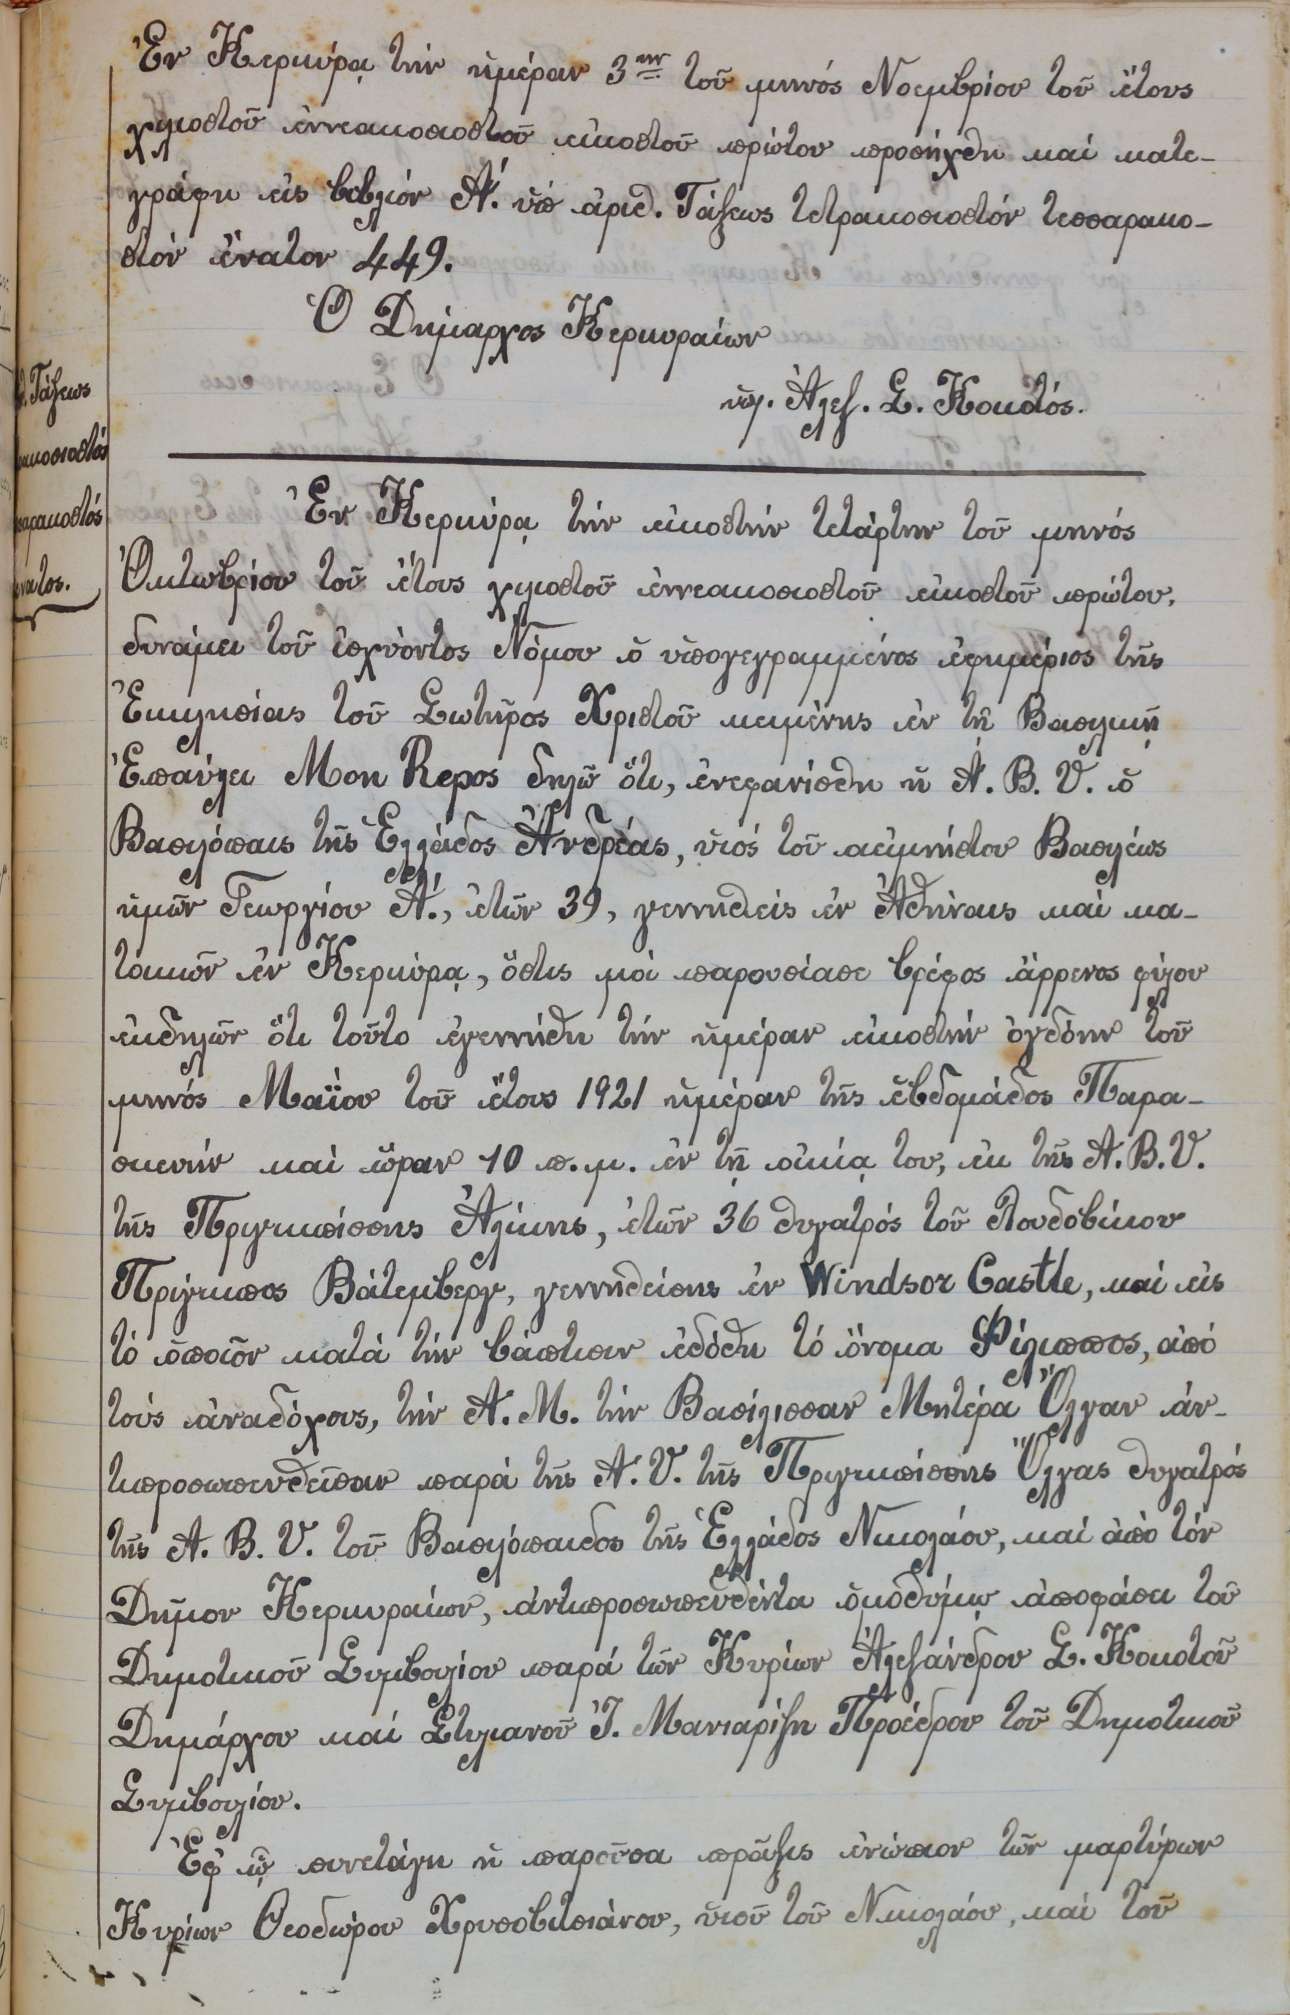 Ἐν Κερκύρᾳ τήν ἡμέραν 3ην τοῦ μηνός Νοεμβρίου τοῦ ἔτους
χιλιοστοῦ ἐννεακοσιοστοῦ εἰκοστοῦ πρώτου προσήχθη καί κατε-
γράφη εἰς βιβλίον Α΄. ὑπ' ἀριθ. Τάξεως τετρακοσιοστόν τεσσαρακο-
στόν ἔνατον 449.
Ὁ Δήμαρχος Κερκυραίων
ὑπ. Ἀλεξ. Σ. Κοκοτός.
Τάξεως
ακοσιοστός
σαρακοστός
ένατος.
Ἐν Κερκύρᾳ τήν εἰκοστήν τετάρτην τοῦ μηνός
Ὀκτωβρίου τοῦ ἔτους χιλιοστοῦ ἐννεακοσιοστοῦ εἰκοστοῦ πρώτου,
δυνάμει τοῦ ἰσχύοντος Νόμου ὁ ὑπογεγραμμένος ἐφημέριος τῆς
Ἐκκλησίας τοῦ Σωτῆρος Χριστοῦ κειμένης ἐν τῇ Βασιλικῇ
Ἐπαύλει Mon Repos δηλῶ ὅτι, ἐνεφανίσθη ἡ Α. Β. Υ. ὁ
Βασιλόπαις τῆς Ἑλλάδος Ἀνδρέας, υἱός τοῦ ἀειμνήστου Βασιλέως
ἡμῶν Γεωργίου Α΄., ἐτῶν 39, γεννηθείς ἐν Ἀθήναις καί κα-
τοικῶν ἐν Κερκύρᾳ, ὅστις μοί παρουσίασε βρέφος ἄρρενος φύλου
ἐκδηλῶν ὅτι τοῦτο ἐγεννήθη τήν ἡμέραν εἰκοστήν ὀγδόην τοῦ
μηνός Μαΐου τοῦ ἔτους 1921 ἡμέραν τῆς ἑβδομάδος Παρα-
σκευήν καί ὥραν 10 π.μ. ἐν τῇ οἰκίᾳ του, ἐκ τῆς Α. Β. Υ.
τῆς Πριγκιπίσσης Ἀλίκης, ἐτῶν 36 θυγατρός τοῦ Λουδοβίκου
Πρίγκιπος Βάτεμβεργ, γεννηθείσης ἐν Windsor Castle, καί εἰς
τό ὁποῖον κατά τήν βάπτισιν ἐδόθη τό ὄνομα Φίλιππος, ἀπό
τούς ἀναδόχους, τήν Α. Μ. τήν Βασίλισσαν Μητέρα Ὄλγαν ἀν-
τιπροσωπευθεῖσαν παρά τῆς Α. Υ. τῆς Πριγκιπίσσης Ὄλγας θυγατρός
τῆς Α. Β. Υ. τοῦ Βασιλόπαιδος τῆς Ἑλλάδος Νικολάου, καί ἀπό τόν
Δῆμον Κερκυραίων, ἀντιπροσωπευθέντα ὁμοθύμῳ ἀποφάσει τοῦ
Δημοτικοῦ Συμβουλίου παρά τῶν Κυρίων Ἀλεξάνδρου Σ. Κοκοτοῦ
Δημάρχου καί Στυλιανοῦ Ἰ. Μανιαρίζη Προέδρου τοῦ Δημοτικοῦ
Συμβουλίου.
Ἐφ' ᾧ συνετάγη ἡ παροῦσα πρᾶξις ἐνώπιον τῶν μαρτύρων
Κυρίων Θεοδώρου Χρυσοβιτσιάνου, υἱοῦ τοῦ Νικολάου, καί τοῦ